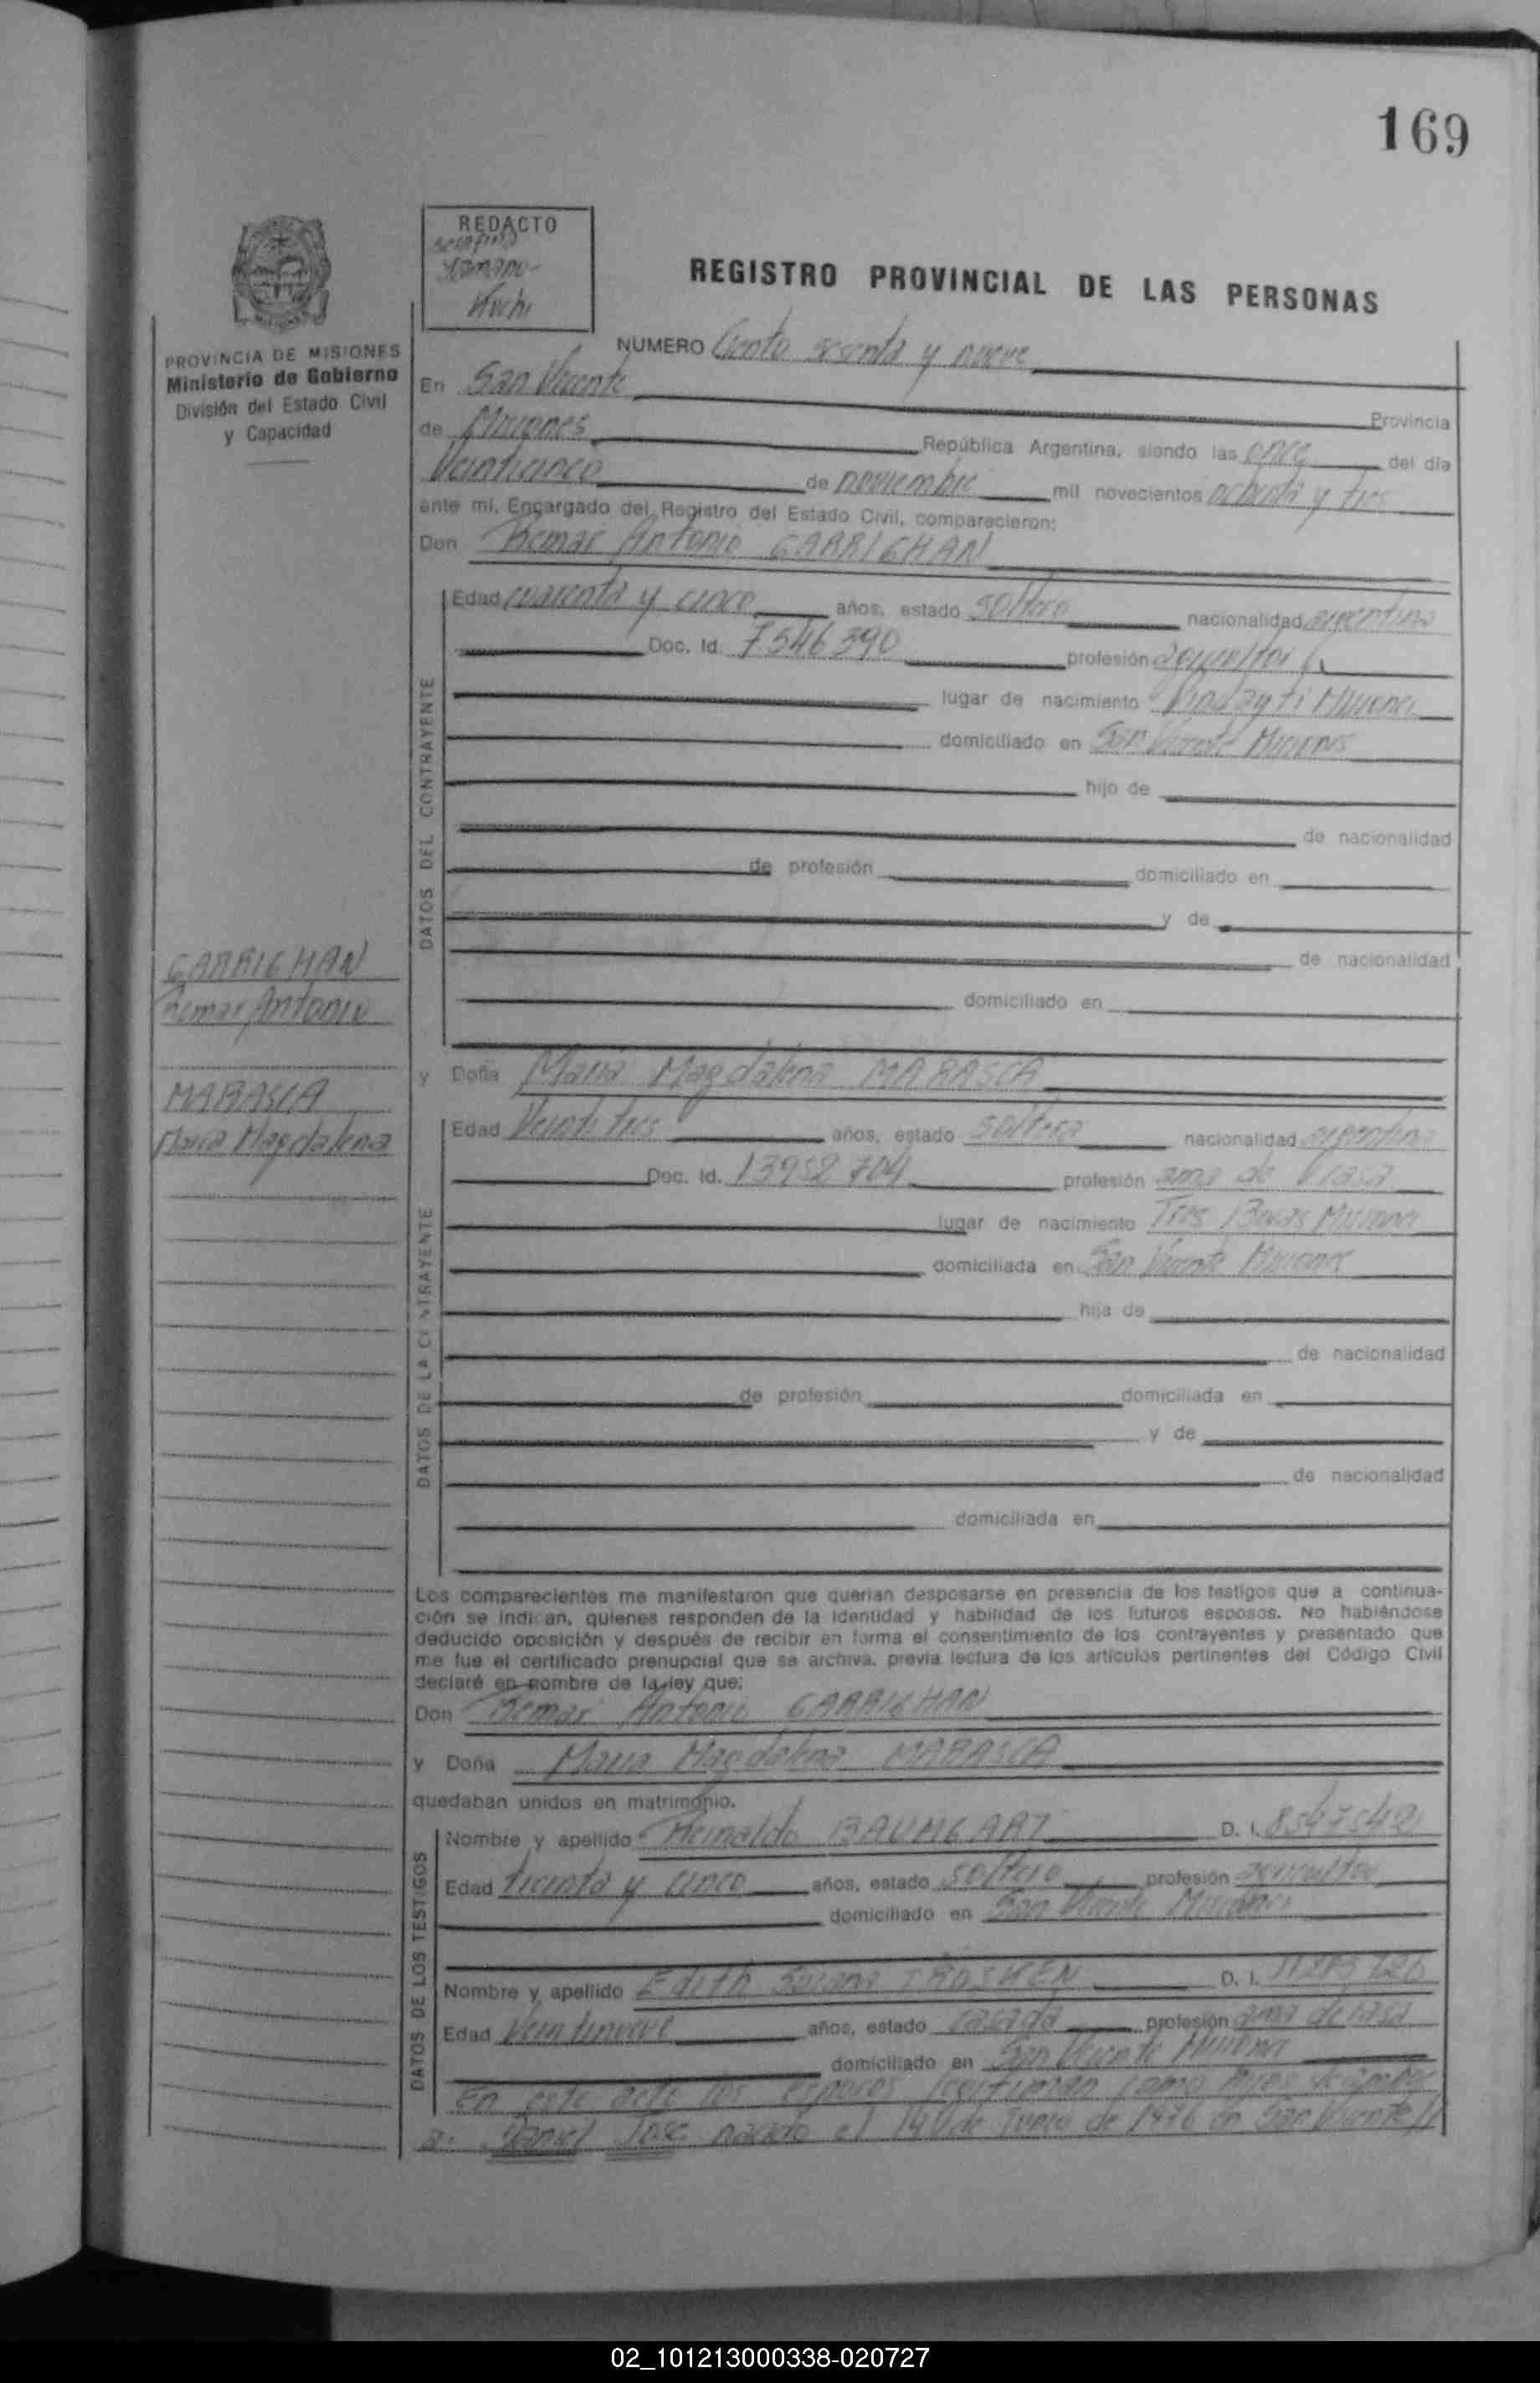 169
REDACTO
REGISTRO PROVINCIAL DE LAS PERSONAS
PROVINCIA DE MISIONES
Ministerio de Gobierno
División del Estado Civil
y Capacidad
NUMERO Ciento sesenta y nueve
En San Vicente Provincia
de Misiones República Argentina, siendo las once del día
Veinticinco de noviembre mil novecientos ochenta y tres
ante mi, Encargado del Registro del Estado Civil, comparecieron:
Don Antonio GARRIGHAN
Edad cuarenta y cinco años, estado soltero nacionalidad argentina
Doc. Id. 7.546.390 profesión agricultor
lugar de nacimiento Misiones
domiciliado en San Vicente Misiones
hijo de
de nacionalidad
de profesión domiciliado en
y de
de nacionalidad
domiciliado en
DATOS DEL CONTRAYENTE
GARRIGHAN
Antonio
MARASCA
Maria Magdalena
y Doña Maria Magdalena MARASCA
Edad Veintitres años, estado soltera nacionalidad argentina
Doc. Id. 13952704 profesión ama de casa
lugar de nacimiento Tres Bocas Misiones
domiciliada en San Vicente Misiones
hija de
de nacionalidad
de profesión domiciliada en
y de
de nacionalidad
domiciliada en
DATOS DE LA CONTRAYENTE
Los comparecientes me manifestaron que querían desposarse en presencia de los testigos que a continua-
ción se indican, quienes responden de la identidad y habilidad de los futuros esposos. No habiéndose
deducido oposición y después de recibir en forma el consentimiento de los contrayentes y presentado que
me fue el certificado prenupcial que se archiva, previa lectura de los artículos pertinentes del Código Civil
declaré en nombre de la ley que:
Don Antonio GARRIGHAN
y Doña Maria Magdalena MARASCA
quedaban unidos en matrimonio.
Nombre y apellido Reinaldo BAUMGART D. I. 8547542
Edad treinta y cinco años, estado soltero profesión agricultor
domiciliado en San Vicente Misiones
Nombre y apellido Edith Susana D. I.
Edad Veintinueve años, estado casada profesión ama de casa
domiciliado en San Vicente Misiones
DATOS DE LOS TESTIGOS
En este acto los esposos legitiman como hijos de ambos
a: Daniel José nacido el 14 de Junio de 1976 en San Vicente
02_101213000338-020727